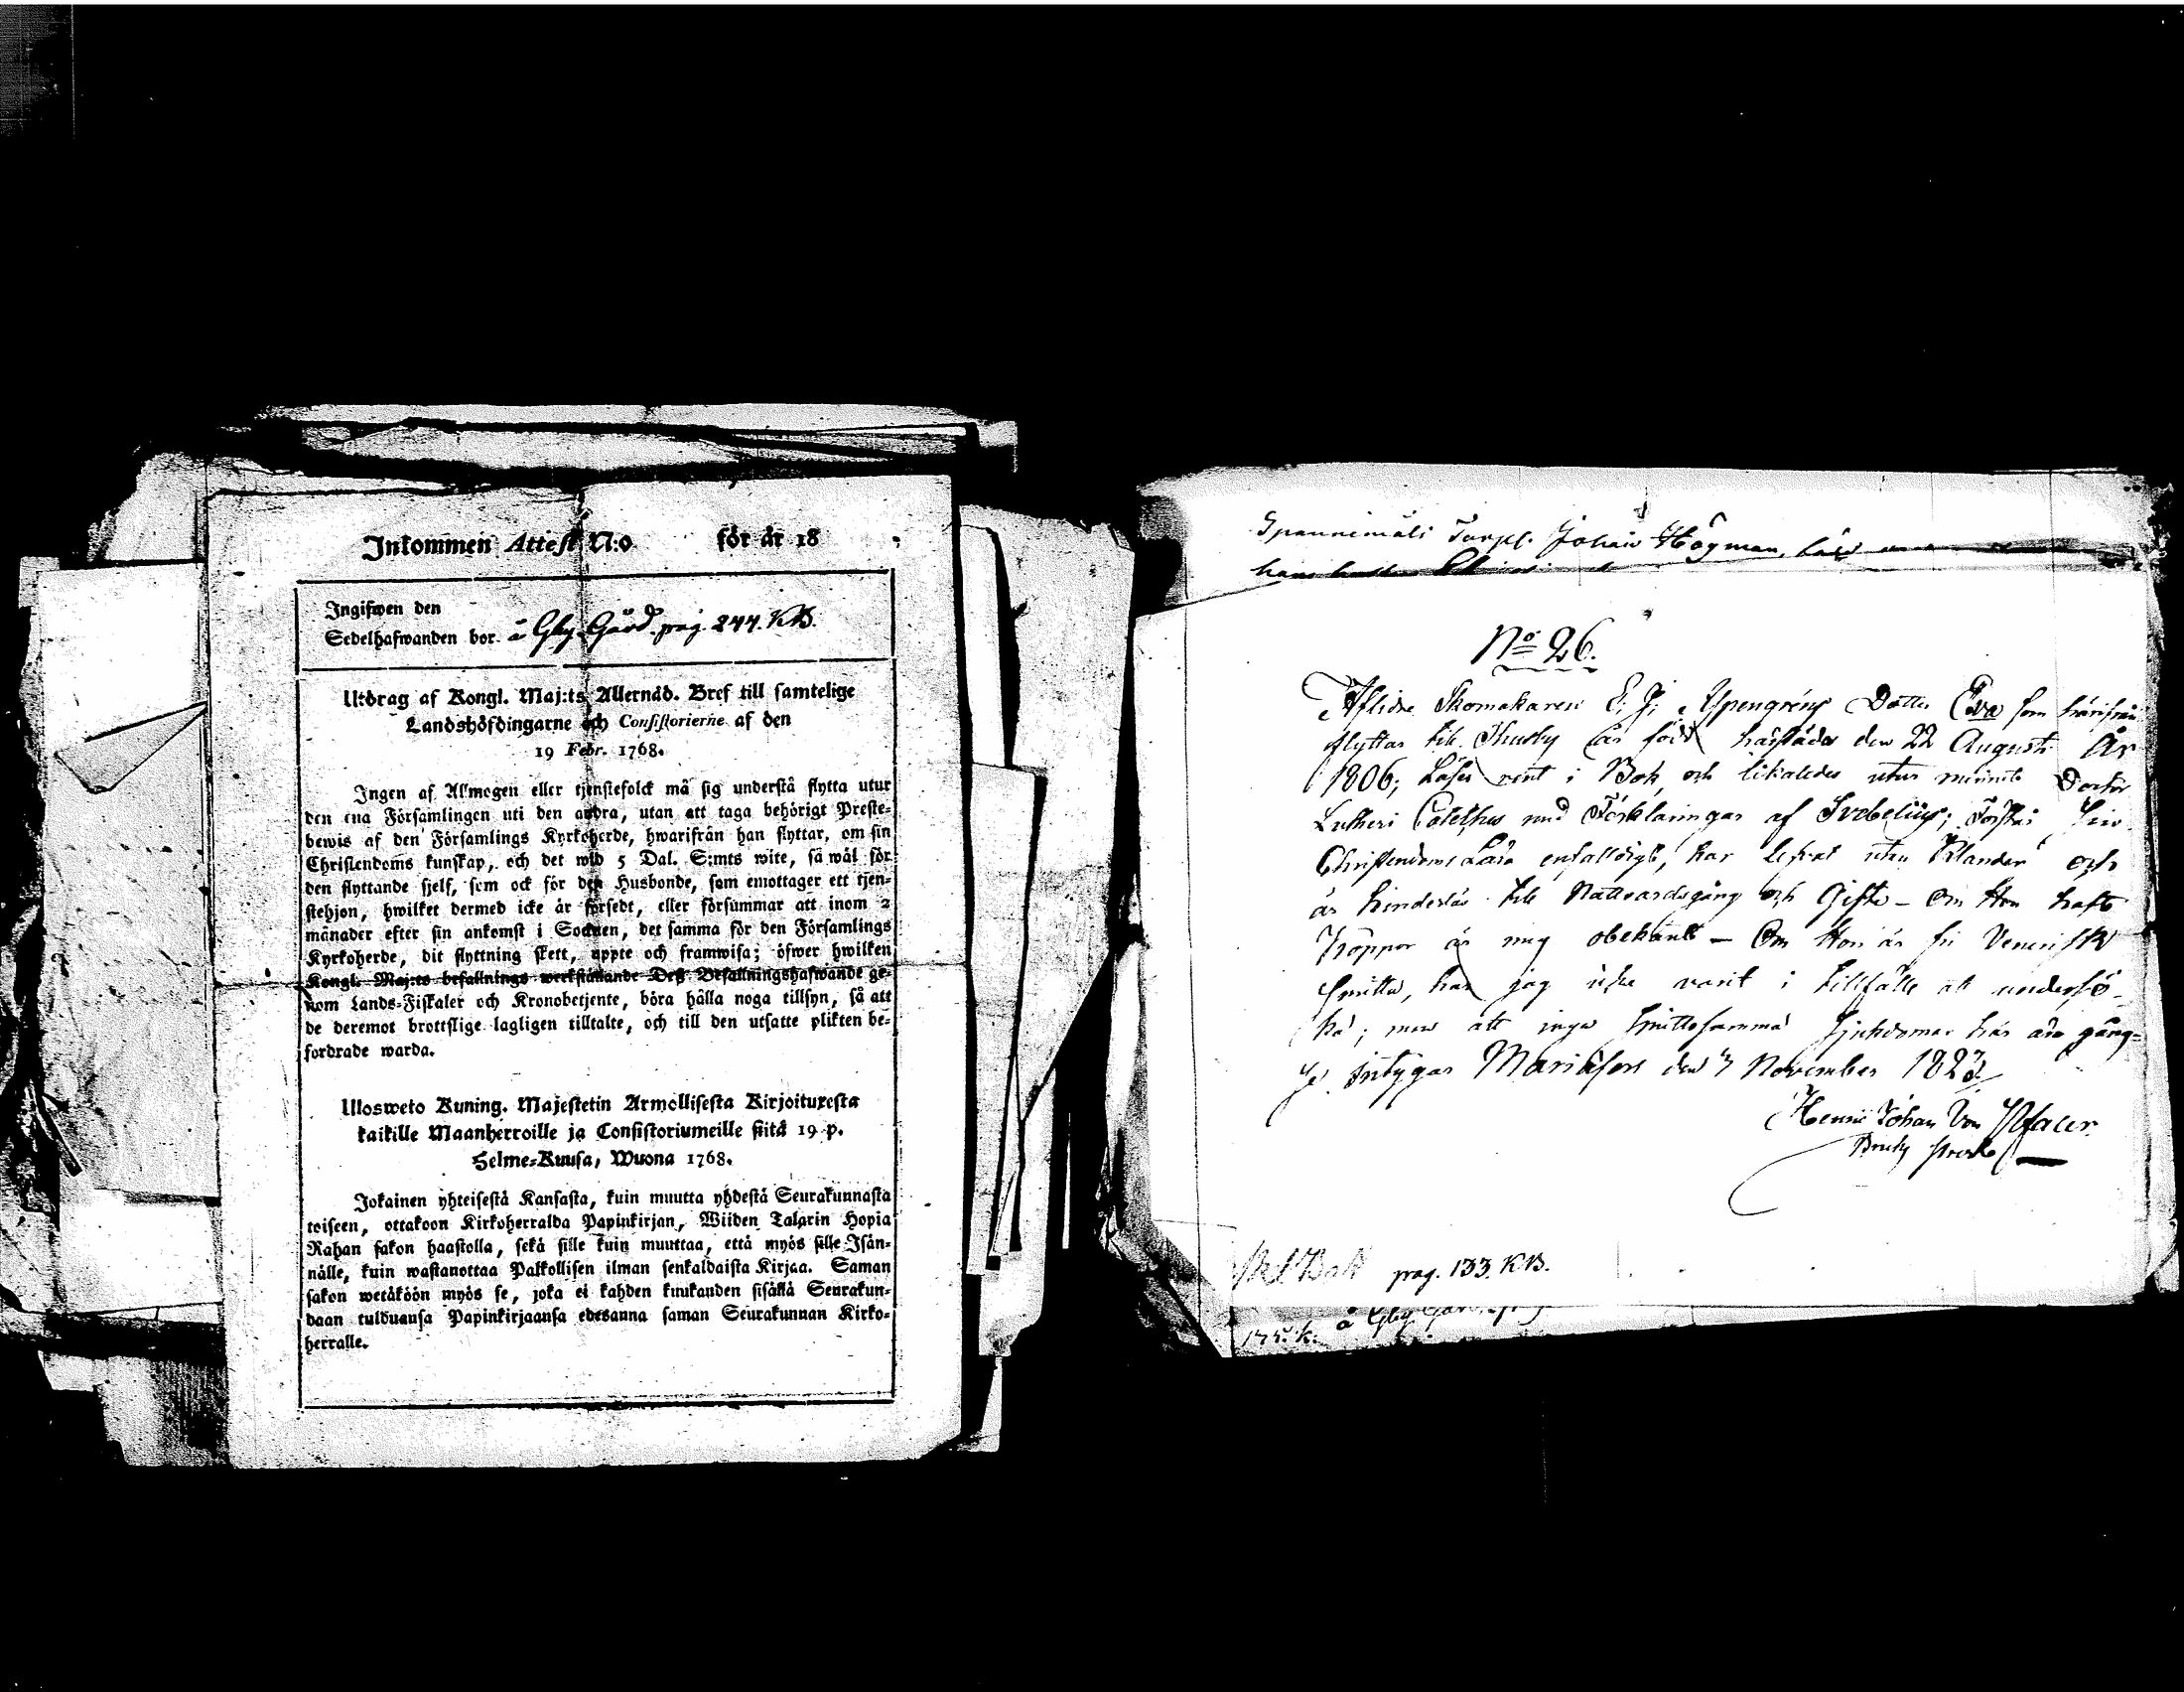 Inkommen Attest N:o för år 18
Ingifwen den
Sedelhafwanden bor. å Gby Gård. pag. 244. KB.
Utdrag af Kongl. Maj:ts Allernåd. Bref till samtelige
Landshöfdingarne och Consistorierne af den
19 Febr. 1768.
Ingen af Allmogen eller tjenstefolck må sig understå flytta utur
den ena Församlingen uti den andra, utan att taga behörigt Preste-
bewis af den Församlings Kyrkoherde, hwarifrån han flyttar, om sin
Christendoms kunskap, och det wid 5 Dal. S:mts wite, så wäl för
den flyttande sjelf, som ock för den Husbonde, som emottager ett tjen-
stehjon, hwilket dermed icke är försedt, eller försummar att inom 2
månader efter sin ankomst i Socknen, det samma för den Församlings
Kyrkoherde, dit flyttning skett, uppte och framwisa; öfwer hwilken
Kongl. Maj:ts befallnings werkställande Deß Befallningshafwande ge-
nom Lands-Fiskaler och Kronobetjente, böra hålla noga tillsyn, så att
de deremot brottslige lagligen tilltalte, och till den utsatte plikten be-
fordrade warda.
Ulosweto Kuning. Majestetin Armollisesta Kirjoituxesta
kaikille Maanherroille ja Consistoriumeille siitä 19 p.
Helme-Kuusa, Wuona 1768.
Jokainen yhteisestä Kansasta, kuin muutta yhdestä Seurakunnasta
toiseen, ottakoon Kirkoherralda Papinkirjan, Wiiden Talarin Hopia
Rahan sakon haastolla, sekä sille kuin muuttaa, että myös sille Isän-
nälle, kuin wastanottaa Palkollisen ilman senkaldaista Kirjaa. Saman
sakon wetäköön myös se, joka ei kahden kuukanden sisällä Seurakun-
daan tulduansa Papinkirjaansa edesanna saman Seurakunnan Kirko-
herralle.
Spannimäli Torpf. Johan Högman
No 26.
Aflidne Skomakaren E. J. Ypengréns Dotter Eva som härifrån
flyttar till Thusby är född härstädes den 22 Augusti År
1806; Läser rent i Bok, och likaledes utur minnet Doctor
Lutheri Catethes med Förklaringar af Svebelius; Förstår sin
Christendoms Lära enfalldigt, har lefvat utan klander och
är hinderlös till Nattvardsgång och Gifte - Om Hon haft
Koppor är mig obekant - Om Hon är fri Venerisk
Smitta, har jag icke varit i tillfälle att undersö-
ka; men att inga smittosamma sjukdomar här äro gäng-
se intygar Mariæfors den 3 November 1823
Henric Johan Von Pfaler
Bruks
pag. 133. KB.
å Gby